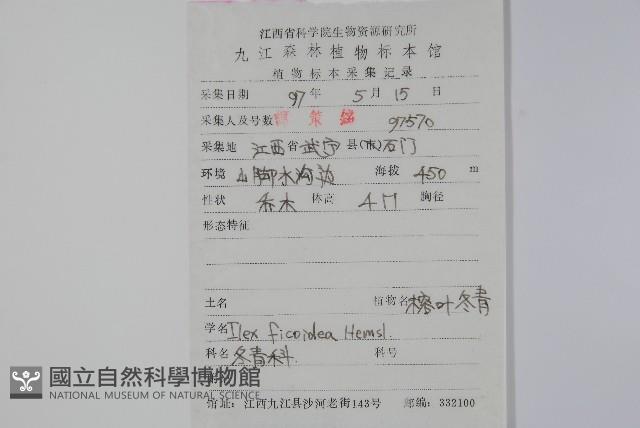 江西省科学院生物资源研究所
九江森林植物标本馆
植物标本采集记录
采集日期 97 年 5 月 15 日
采集人及号数 谭策铭 97570
采集地 江西省武宁县(市)石门
环境 山脚水沟边 海拔 450 m
性状 乔木 体高 4M 胸径
形态特征
土名 植物名 榕叶冬青
学名 Ilex ficoidea Hemsl.
科名 冬青科 科号
國立自然科學博物館
NATIONAL MUSEUM OF NATURAL SCIENCE
馆址：江西九江县沙河老街143号 邮编：332100